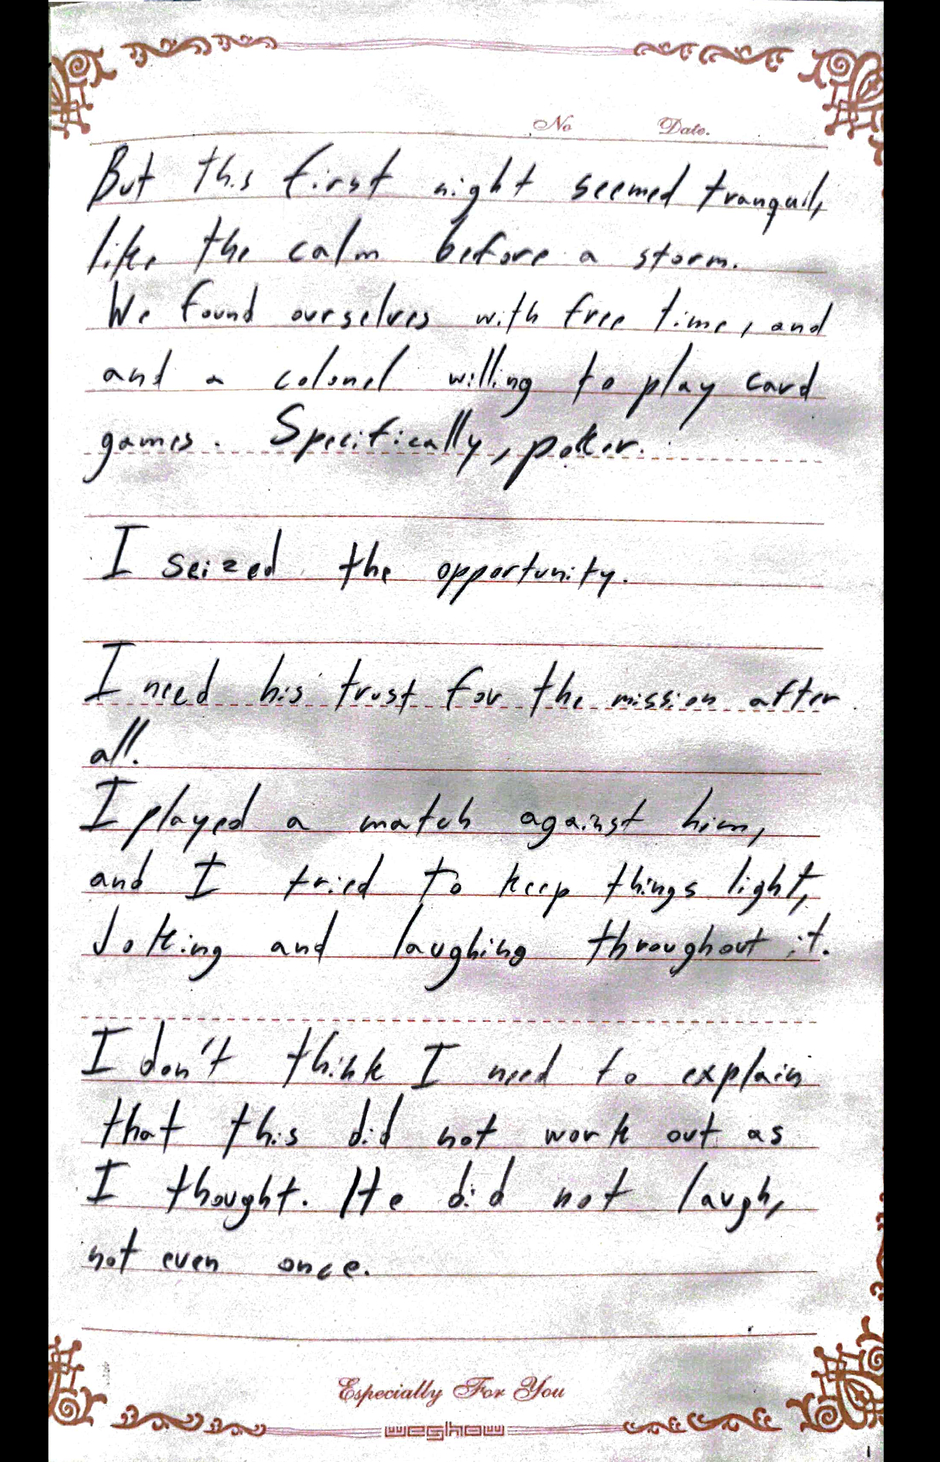 No Date.
But this first night seemed tranquil,
like the calm before a storm.
We found ourselves with free time, and
and a colonel willing to play card
games. Specifically, poker.
I seized the opportunity.
I need his trust for the mission after
all.
I played a match against him,
and I tried to keep things light,
Joking and laughing throughout it.
I don't think I need to explain
that this did not work out as
I thought. He did not laugh,
not even once.
Especially For You
weghow